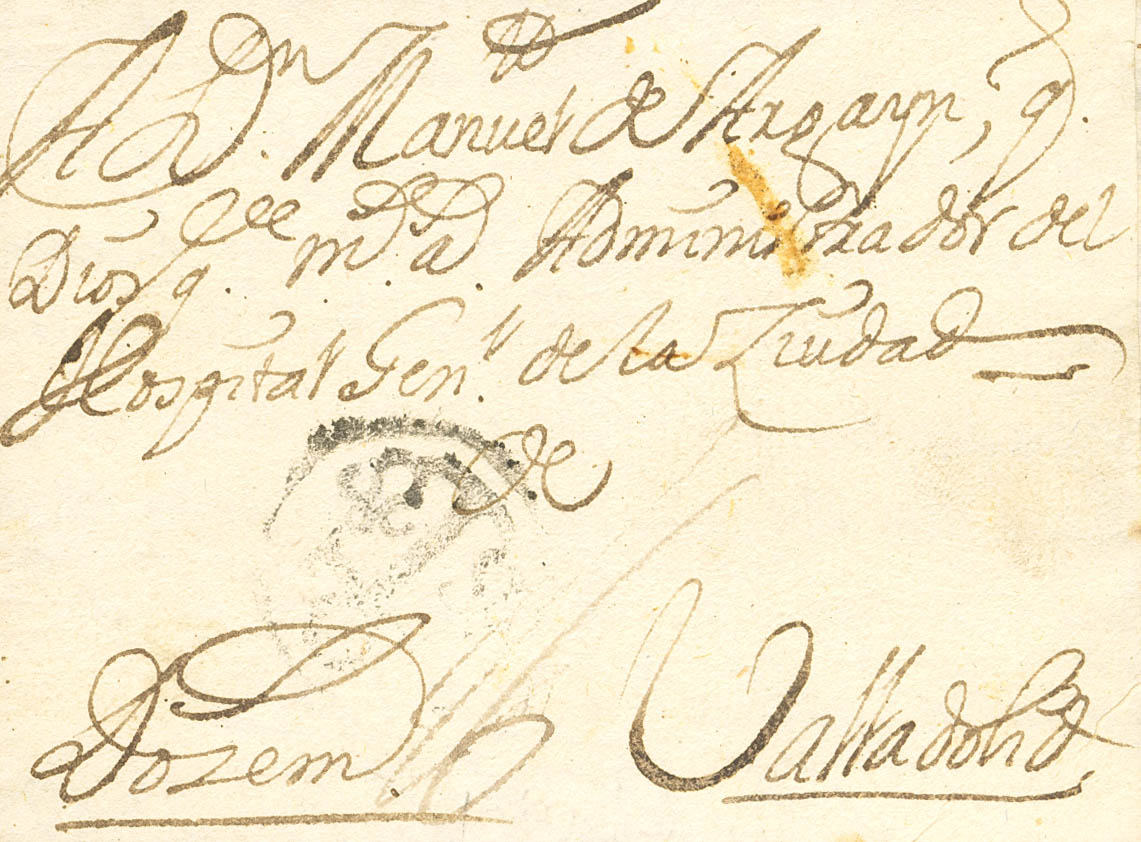 A Dn. Manuel de Argayn, q.
Dios gue. ms. as. Administrador del
Hospital Genl. de la Ziudad
de
Valladolid,